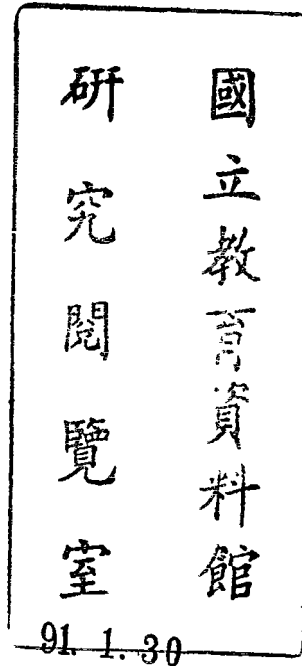 國立教育資料館
研究閱覽室
91. 1. 30